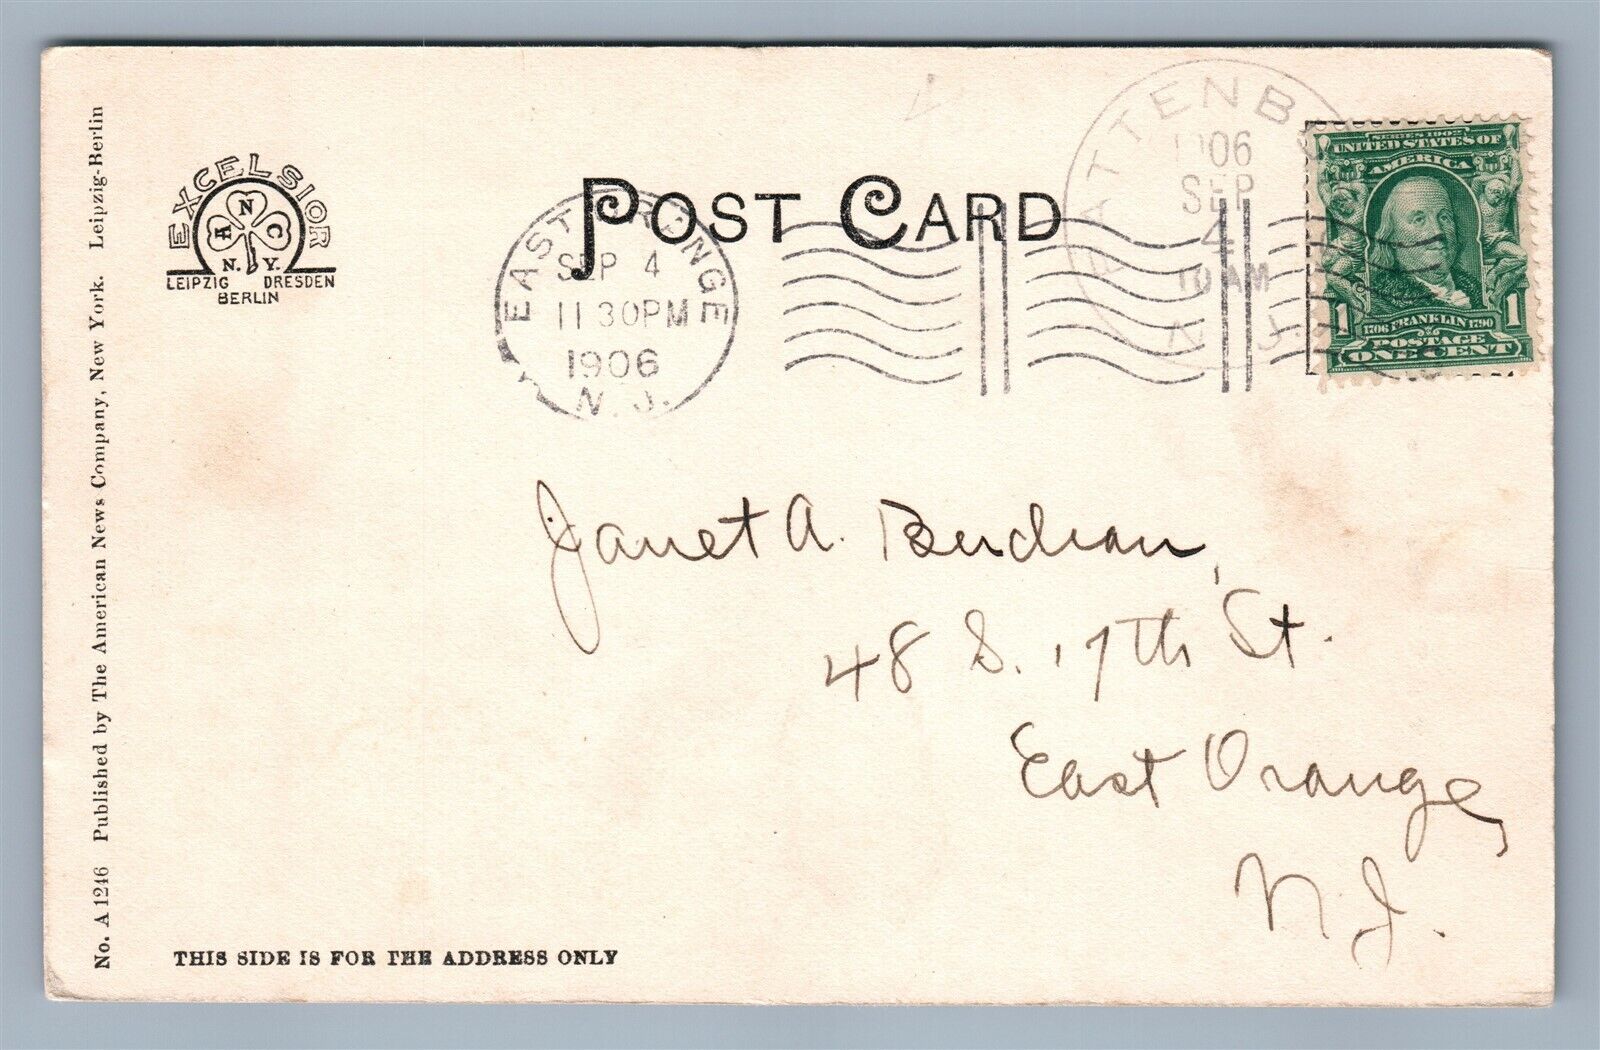 EXCELSIOR
A N C
N. Y.
LEIPZIG DRESDEN
BERLIN
POST CARD
EAST ORANGE
SEP 4
11 30PM
1906
N. J.
1906
SEP
4
10 AM
N. J.
SERIES 1902
UNITED STATES OF
AMERICA
1706 FRANKLIN 1790
1 1
POSTAGE
ONE CENT
Janet A.
48 S. 17th St.
East Orange,
N. J.
THIS SIDE IS FOR THE ADDRESS ONLY
No. A 1246 Published by The American News Company, New York. Leipzig-Berlin